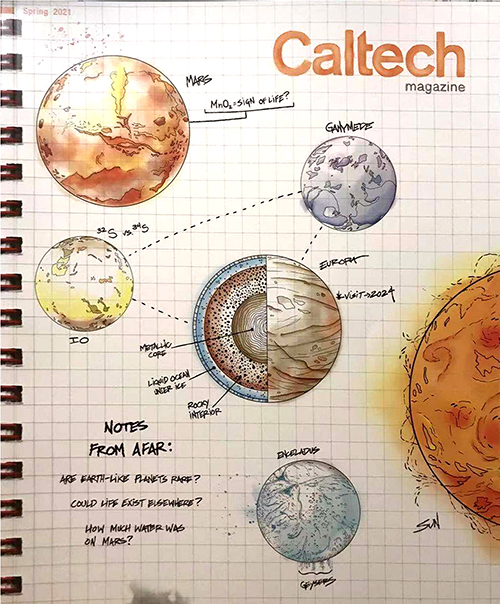 Spring 2021
Caltech
magazine
MARS
MnO₂ = SIGN OF LIFE?
GANYMEDE
³²S vs. ³⁴S
EUROPA
*VISIT→2024
IO
METALLIC
CORE
LIQUID OCEAN
UNDER ICE
ROCKY
INTERIOR
NOTES
FROM AFAR:
ARE EARTH-LIKE PLANETS RARE?
COULD LIFE EXIST ELSEWHERE?
HOW MUCH WATER WAS
ON MARS?
ENCELADUS
GEYSERS
SUN